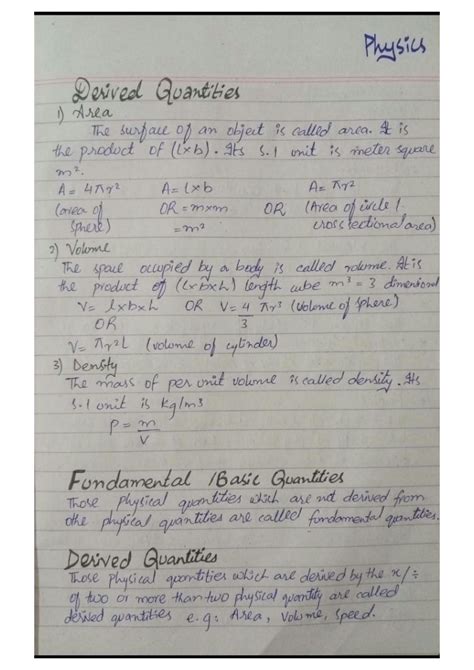 Physics
Derived Quantities
1) Area
The surface of an object is called area. It is
the product of (l×b). Its S.I unit is meter square
m².
A = 4πr² A = l×b A = πr²
(area of OR = m×m OR (Area of circle /
sphere) = m² cross sectional area)
2) Volume
The space occupied by a body is called volume. It is
the product of (l×b×h) length cube m³ = 3 dimensional
V = l×b×h OR V = 4/3 πr³ (volume of sphere)
OR
V = πr²L (volume of cylinder)
3) Density
The mass of per unit volume is called density. Its
S.I unit is kg/m3
P = m/V
Fundamental / Basic Quantities
Those physical quantities which are not derived from
othe physical quantities are called fundamental quantities.
Derived Quantities
Those physical quantities which are derived by the ×/÷
of two or more than two physical quantity are called
derived quantities e.g: Area, Volume, Speed.